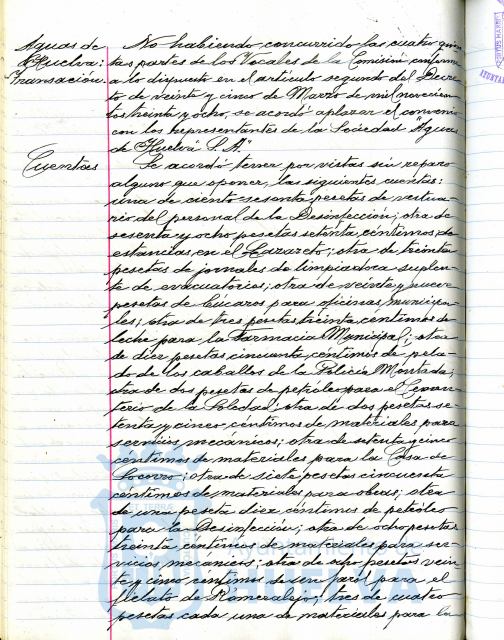 Aguas de
Huelva:
Transación.
No habiendo concurrido las cuatro quin-
tas partes de los Vocales de la Comisión conforme
a lo dispuesto en el artículo segundo del Decre-
to de veinte y cinco de Marzo de mil novecien-
tos treinta y ocho, se acordó aplazar el convenio
con los representantes de la Sociedad "Aguas
de Huelva S. A."
Cuentas
Se acordó tener por vistas sin reparo
alguno que oponer, las siguientes cuentas:
una de ciento sesenta pesetas de vestua-
rio del personal de la Desinfección; otra de
sesenta y ocho pesetas setenta céntimos de
estancias en el Lazareto; otra de treinta
pesetas de jornales de limpiadora suplen-
te de evacuatorios; otra de veinte y nueve
pesetas de búcaros para oficinas municipa-
les; otra de tres pesetas treinta céntimos de
leche para la Farmacia Municipal; otra
de diez pesetas cincuenta céntimos de pela-
do de los caballos de la Policía Montada;
otra de dos pesetas de petróleo para el Cemen-
terio de la Soledad; otra de dos pesetas se-
tenta y cinco céntimos de materiales para
servicios mecánicos; otra de setenta y cinco
céntimos de materiales para la Casa de
Socorro; otra de siete pesetas cincuenta
céntimos de materiales para obras; otra
de una peseta diez céntimos de petróleo
para la Desinfección; otra de ocho pesetas
treinta céntimos de materiales para ser-
vicios mecánicos; otra de ocho pesetas vein-
te y cinco céntimos de un farol para el
fielato de Romeralejo; tres de cuatro
pesetas cada una de materiales para la
Ayuntamiento de